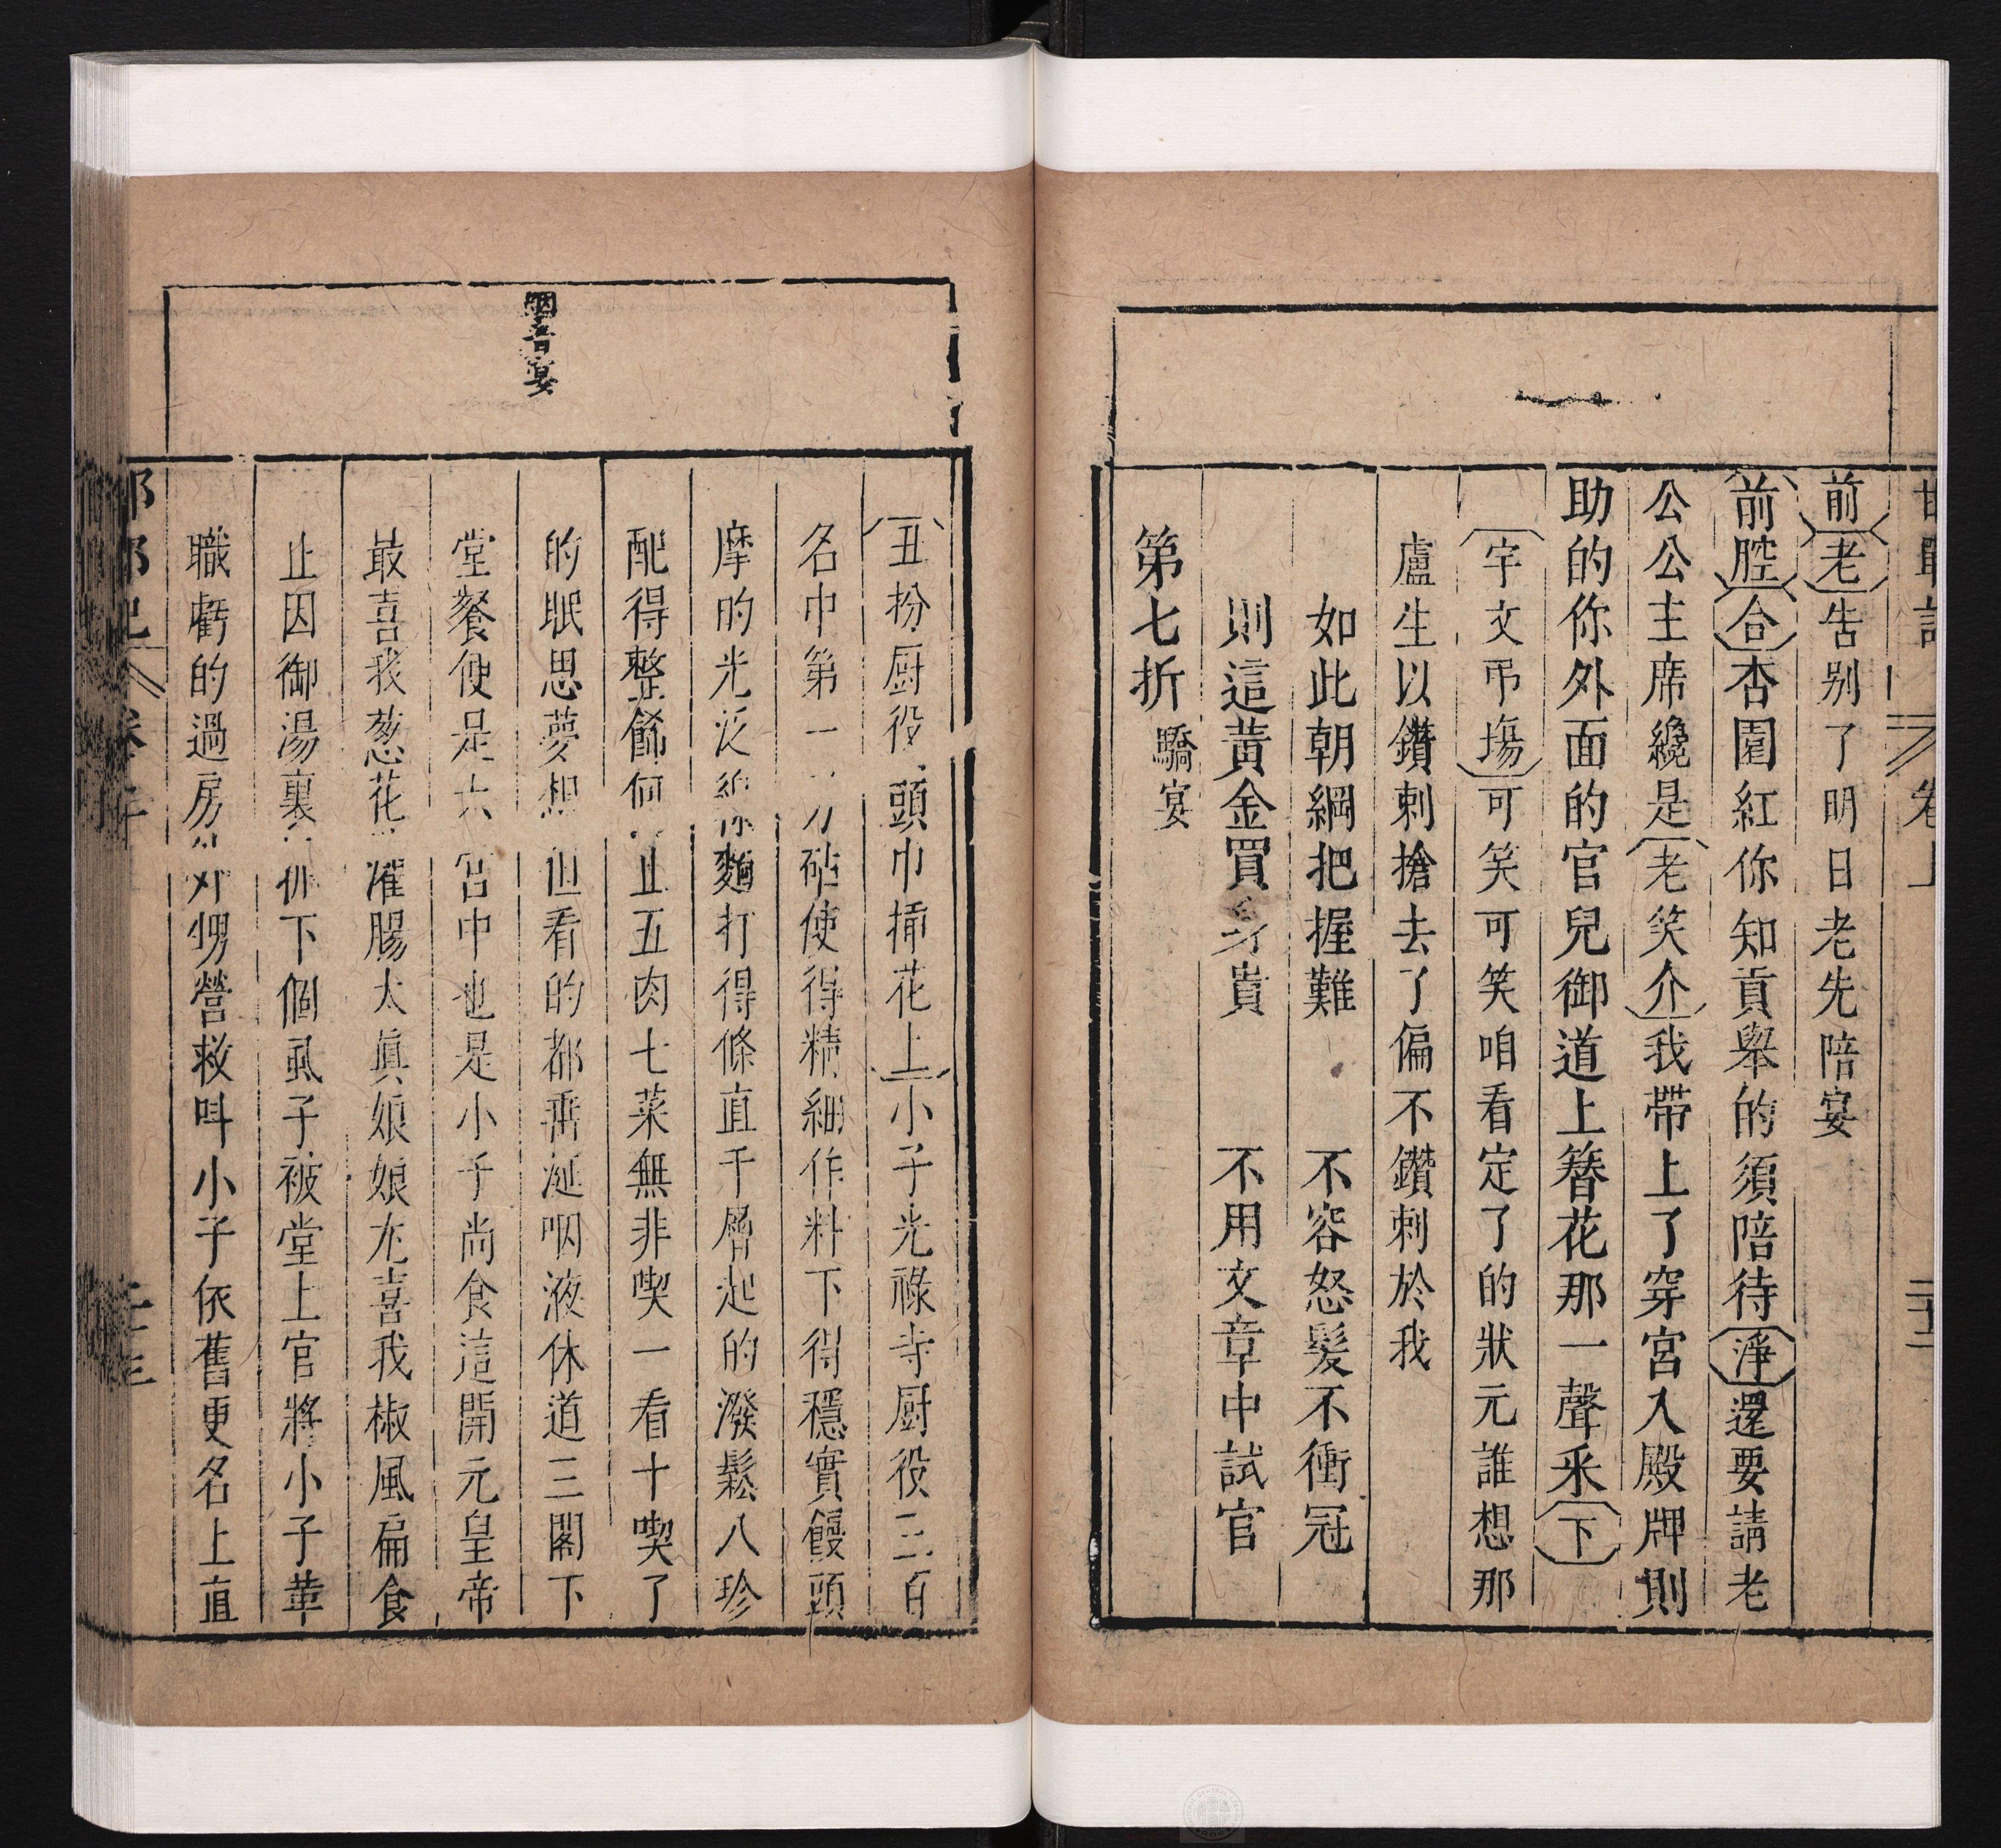 前老告别了明日老先陪宴
前腔合杏園紅你知貢舉的須陪待淨還要請老
公公主席纔是老笑介我帶上了穿宮入殿牌則
助的你外面的官兒御道上簪花那一聲釆下
宇文弔塲可笑可笑咱看定了的狀元誰想那
盧生以鑽刺搶去了偏不鑽刺於我
如此朝綱把握難　不容怒髮不衝冠
則這黃金買身貴　不用文章中試官
第七折驕宴
丑扮厨役頭巾插花上小子光祿寺厨役三百
名中第一刀砧使得精細作料下得穩實饅頭
摩的光泛線麵打得條直千層起的潑鬆八珍
配得整餙何止五肉七菜無非喫一看十喫了
的眠思夢想但看的都垂涎咽液休道三閣下
堂餐便是六宮中也是小子尚食這開元皇帝
最喜我葱花灌腸太眞娘娘尤喜我椒風扁食
止因御湯裏下個虱子被堂上官將小子革
職虧的過房外甥營救呌小子依舊更名上直
邯鄲記
卷上